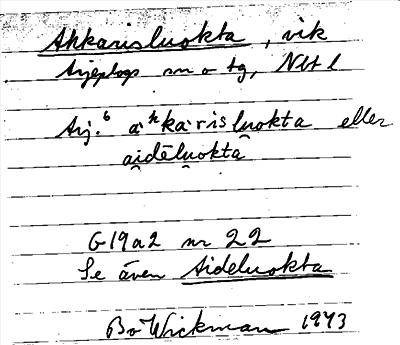 Ahkarisluokta, vik
Arjeplogs sn o tg, Nbt l
Arj.⁶ aʰka·ris luokta eller
aidēluokta
G19a2 nr 22
Se även Aideluokta
Bo Wickman 1943